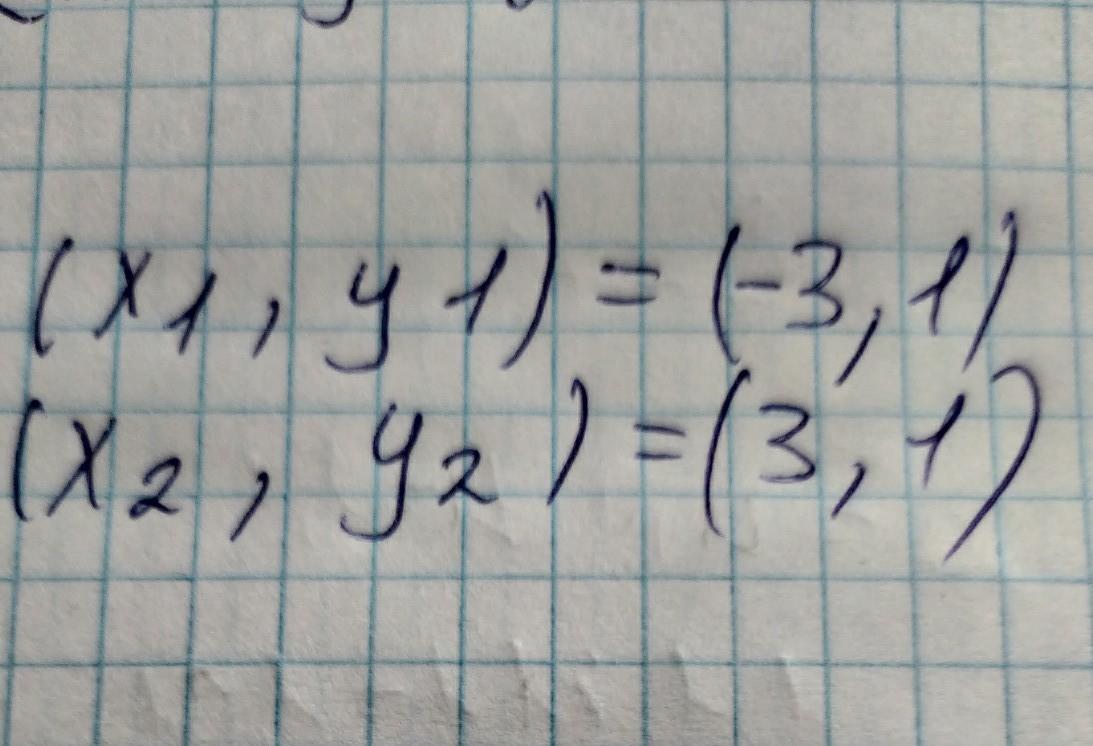 (x1, y1) = (-3, 1)
(x2, y2) = (3, 1)